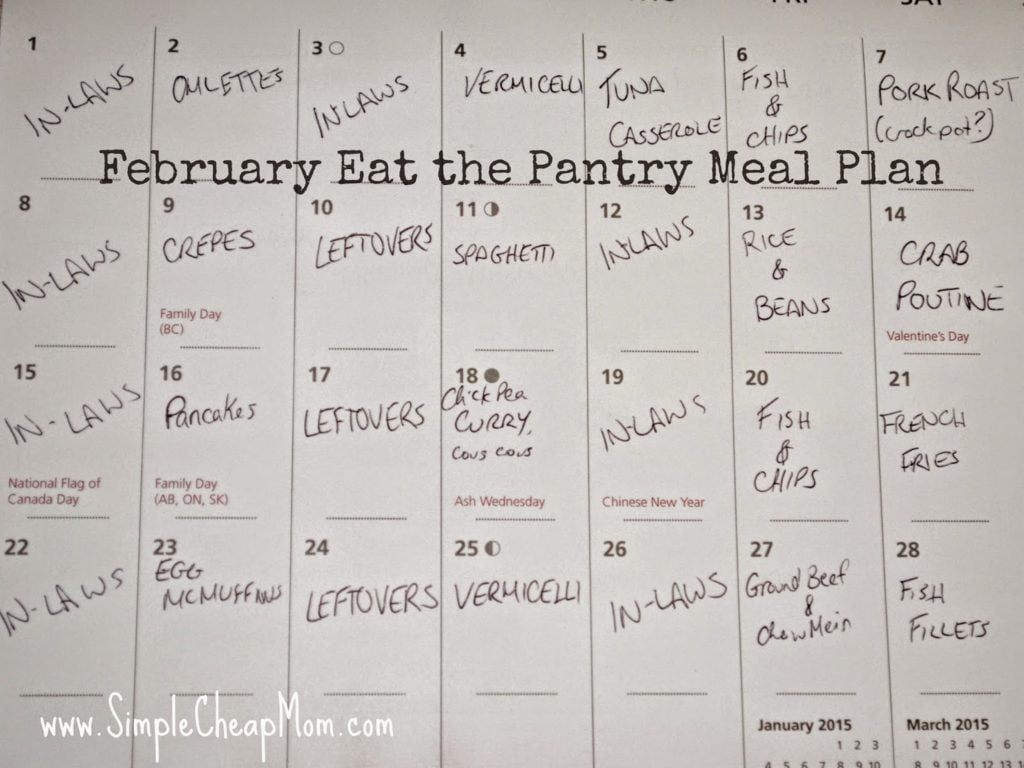 FRI SAT
1 2 3 4 5 6 7
IN-LAWS
OMLETTES
IN-LAWS
VERMICELLI
TUNA
CASSEROLE
FISH
&
CHIPS
PORK ROAST
(crock pot?)
February Eat the Pantry Meal Plan
8 9 10 11 12 13 14
IN-LAWS
CREPES
Family Day
(BC)
LEFTOVERS
SPAGHETTI
IN-LAWS
RICE
&
BEANS
CRAB
POUTINE
Valentine's Day
15 16 17 18 19 20 21
IN-LAWS
National Flag of
Canada Day
Pancakes
Family Day
(AB, ON, SK)
LEFTOVERS
Chick Pea
CURRY,
COUS COUS
Ash Wednesday
IN-LAWS
Chinese New Year
FISH
&
CHIPS
FRENCH
FRIES
22 23 24 25 26 27 28
IN-LAWS
EGG
MCMUFFINS
LEFTOVERS
VERMICELLI
IN-LAWS
Ground Beef
&
Chow Mein
FISH
FILLETS
www.SimpleCheapMom.com
January 2015
1 2 3
4 5 6 7 8 9 10
March 2015
1 2 3 4 5 6 7
8 9 10 11 12 13